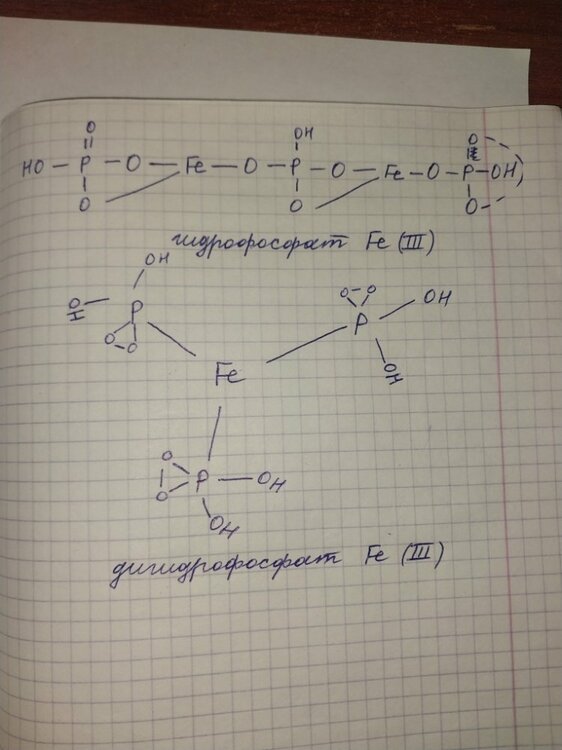 O OH O
HO – P – O – Fe – O – P – O – Fe – O – P – OH
O O O
гидрофосфат Fe (III)
OH
HO P
O O
O O OH
P
OH
Fe
O
O P – OH
OH
дигидрофосфат Fe (III)